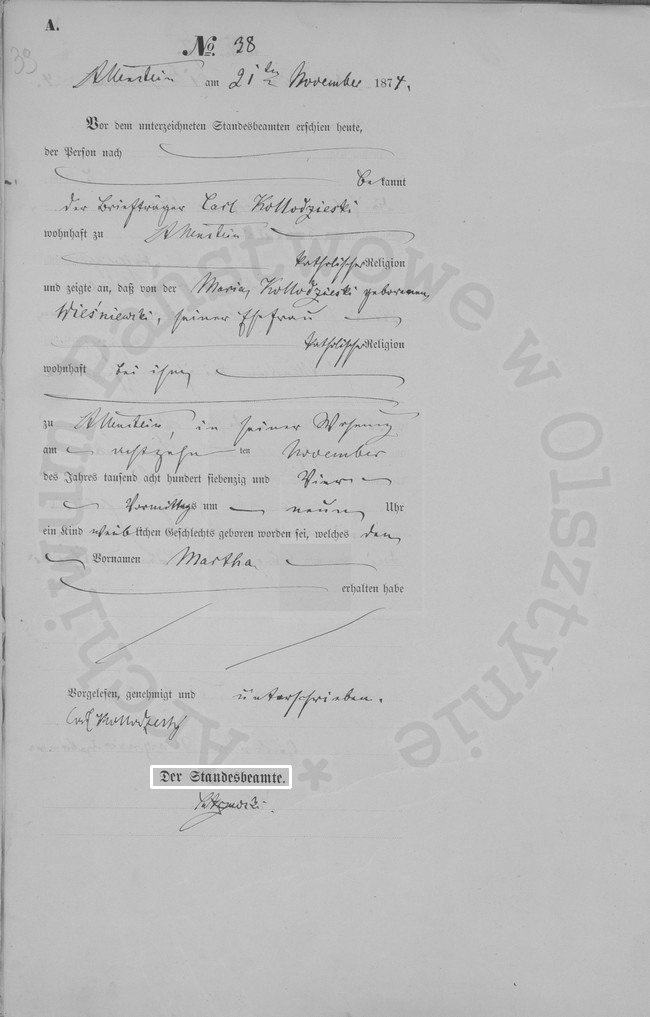 A.
39
No. 38
Allenstein am 21ten November 1874.
Vor dem unterzeichneten Standesbeamten erschien heute,
der Person nach
bekannt
der Briefträger Carl Kollodzieski
wohnhaft zu Allenstein
katholischer Religion
und zeigte an, daß von der Maria, Kollodzieski geborenen
Wiśniewski, seiner Ehefrau
katholischer Religion
wohnhaft bei ihm
zu Allenstein, in seiner Wohnung
am achtzehn ten November
des Jahres tausend acht hundert siebenzig und Vier
Vormittags um neun Uhr
ein Kind weiblichen Geschlechts geboren worden sei, welches den
Vornamen Martha
erhalten habe
Vorgelesen, genehmigt und unterschrieben.
Carl
Der Standesbeamte.
Archiwum Państwowe w Olsztynie *